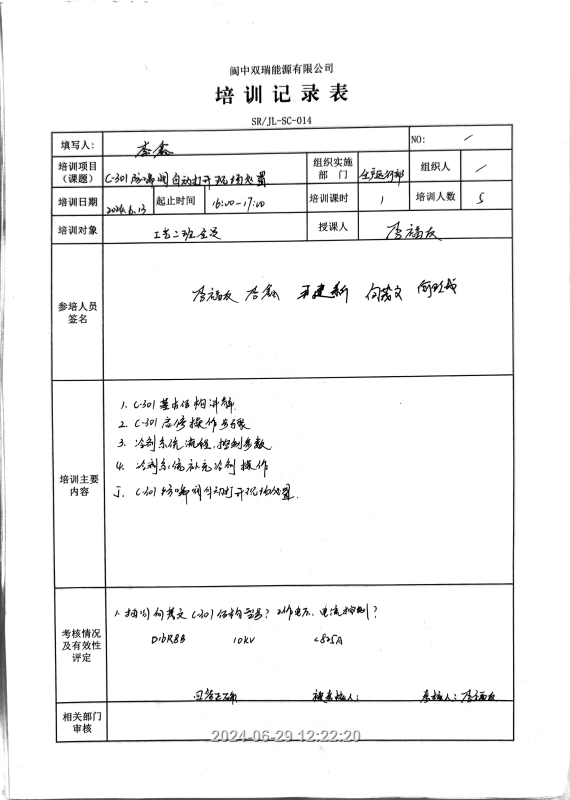 阆中双瑞能源有限公司
培训记录表
SR/JL-SC-014
填写人： 李鑫 NO: /
培训项目（课题） C-301防喘阀自动打开现场处置 组织实施部门 生产运行部 组织人 /
培训日期 2024.6.13 起止时间 16:00-17:00 培训课时 1 培训人数 5
培训对象 工艺二班全员 授课人 李福友
参培人员签名 李福友 李鑫 王建新 何茂文
培训主要内容
1. C-301基本结构讲解.
2. C-301启停操作步骤
3. 冷剂系统流程,控制参数
4. 冷剂系统补充冷剂操作
5. C-301防喘阀自动打开现场处置.
考核情况及有效性评定
1. 抽问何茂文C-301结构型号？工作电压、电流控制？
10KV <825A
回答正确 被考核人： 考核人：李福友
相关部门审核
2024-06-29 12:22:20